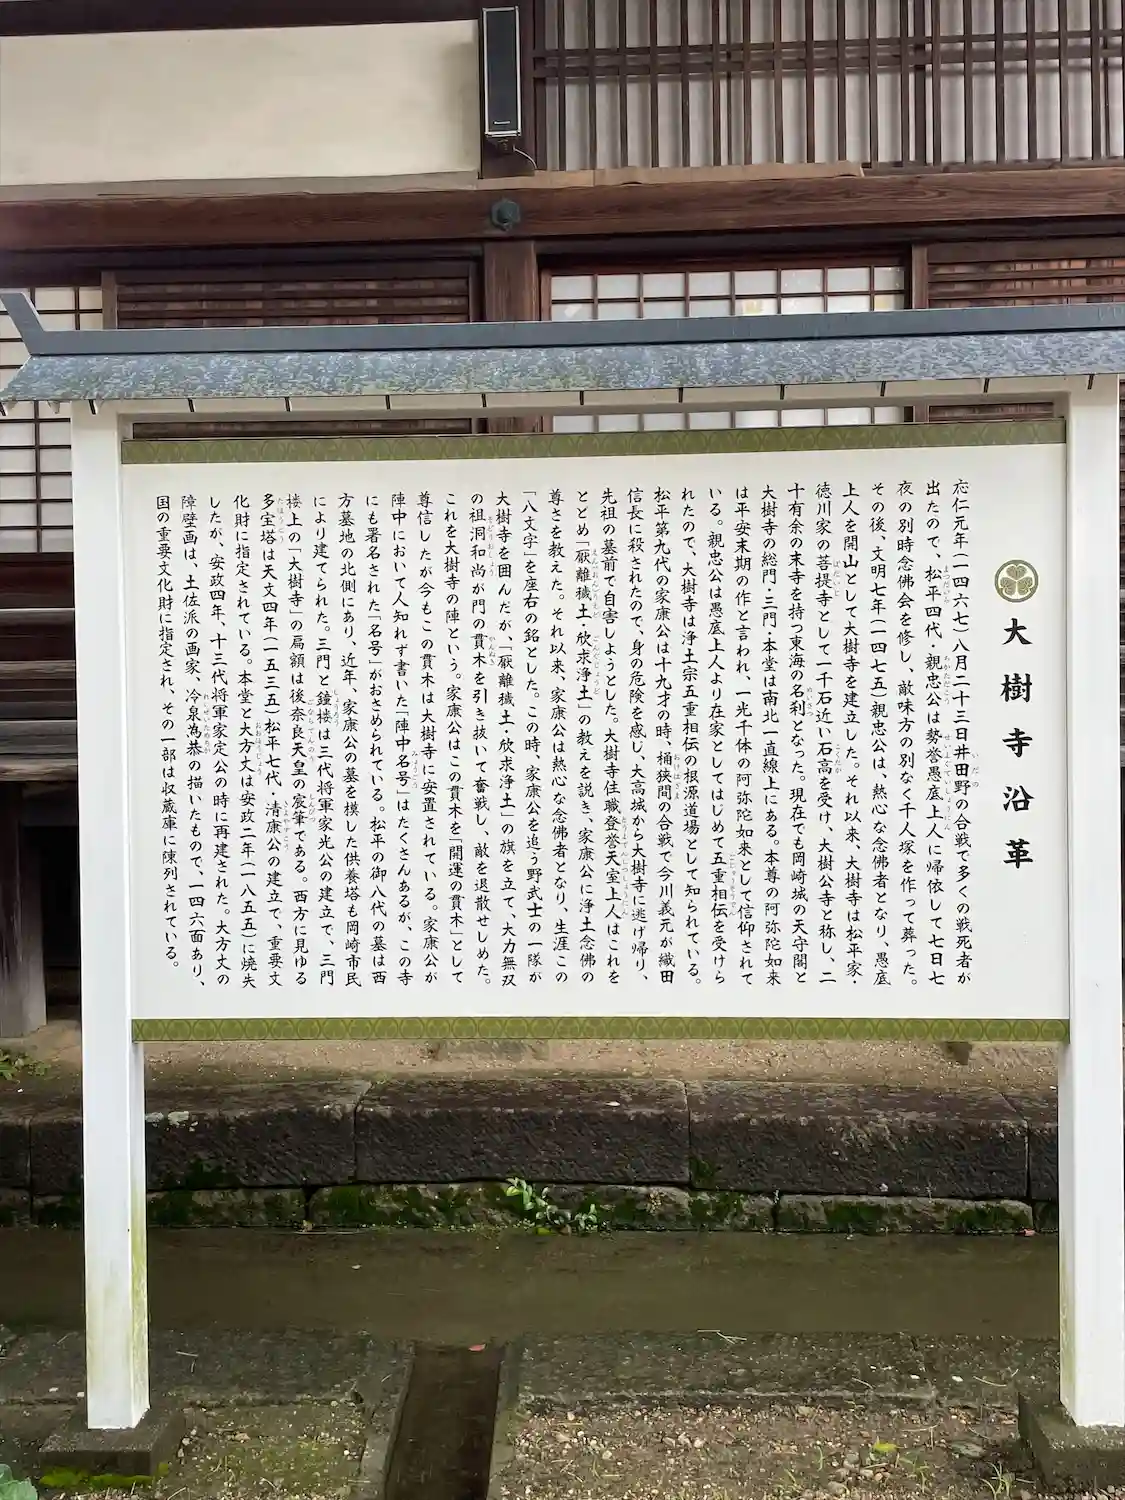 大樹寺沿革
応仁元年(一四六七)八月二十三日井田野の合戦で多くの戦死者が
出たので、松平四代・親忠公は勢誉愚底上人に帰依して七日七
夜の別時念佛会を修し、敵味方の別なく千人塚を作って葬った。
その後、文明七年(一四七五)親忠公は、熱心な念佛者となり、愚底
上人を開山として大樹寺を建立した。それ以来、大樹寺は松平家・
徳川家の菩提寺として一千石近い石高を受け、大樹公寺と称し、二
十有余の末寺を持つ東海の名刹となった。現在でも岡崎城の天守閣と
大樹寺の総門・三門・本堂は南北一直線上にある。本尊の阿弥陀如来
は平安末期の作と言われ、一光千体の阿弥陀如来として信仰されて
いる。親忠公は愚底上人より在家としてはじめて五重相伝を受けら
れたので、大樹寺は浄土宗五重相伝の根源道場として知られている。
松平第九代の家康公は十九才の時、桶狭間の合戦で今川義元が織田
信長に殺されたので、身の危険を感じ、大高城から大樹寺に逃げ帰り、
先祖の墓前で自害しようとした。大樹寺住職登誉天室上人はこれを
とどめ「厭離穢土・欣求浄土」の教えを説き、家康公に浄土念佛の
尊さを教えた。それ以来、家康公は熱心な念佛者となり、生涯この
「八文字」を座右の銘とした。この時、家康公を追う野武士の一隊が
大樹寺を囲んだが、「厭離穢土・欣求浄土」の旗を立て、大力無双
の祖洞和尚が門の貫木を引き抜いて奮戦し、敵を退散せしめた。
これを大樹寺の陣という。家康公はこの貫木を「開運の貫木」として
尊信したが今もこの貫木は大樹寺に安置されている。家康公が
陣中において人知れず書いた「陣中名号」はたくさんあるが、この寺
にも署名された「名号」がおさめられている。松平の御八代の墓は西
方墓地の北側にあり、近年、家康公の墓を模した供養塔も岡崎市民
により建てられた。三門と鐘楼は三代将軍家光公の建立で、三門
楼上の「大樹寺」の扁額は後奈良天皇の宸筆である。西方に見ゆる
多宝塔は天文四年(一五三五)松平七代、清康公の建立で、重要文
化財に指定されている。本堂と大方丈は安政二年(一八五五)に焼失
したが、安政四年、十三代将軍家定公の時に再建された。大方丈の
障壁画は、土佐派の画家、冷泉為恭の描いたもので、一四六面あり、
国の重要文化財に指定され、その一部は収蔵庫に陳列されている。